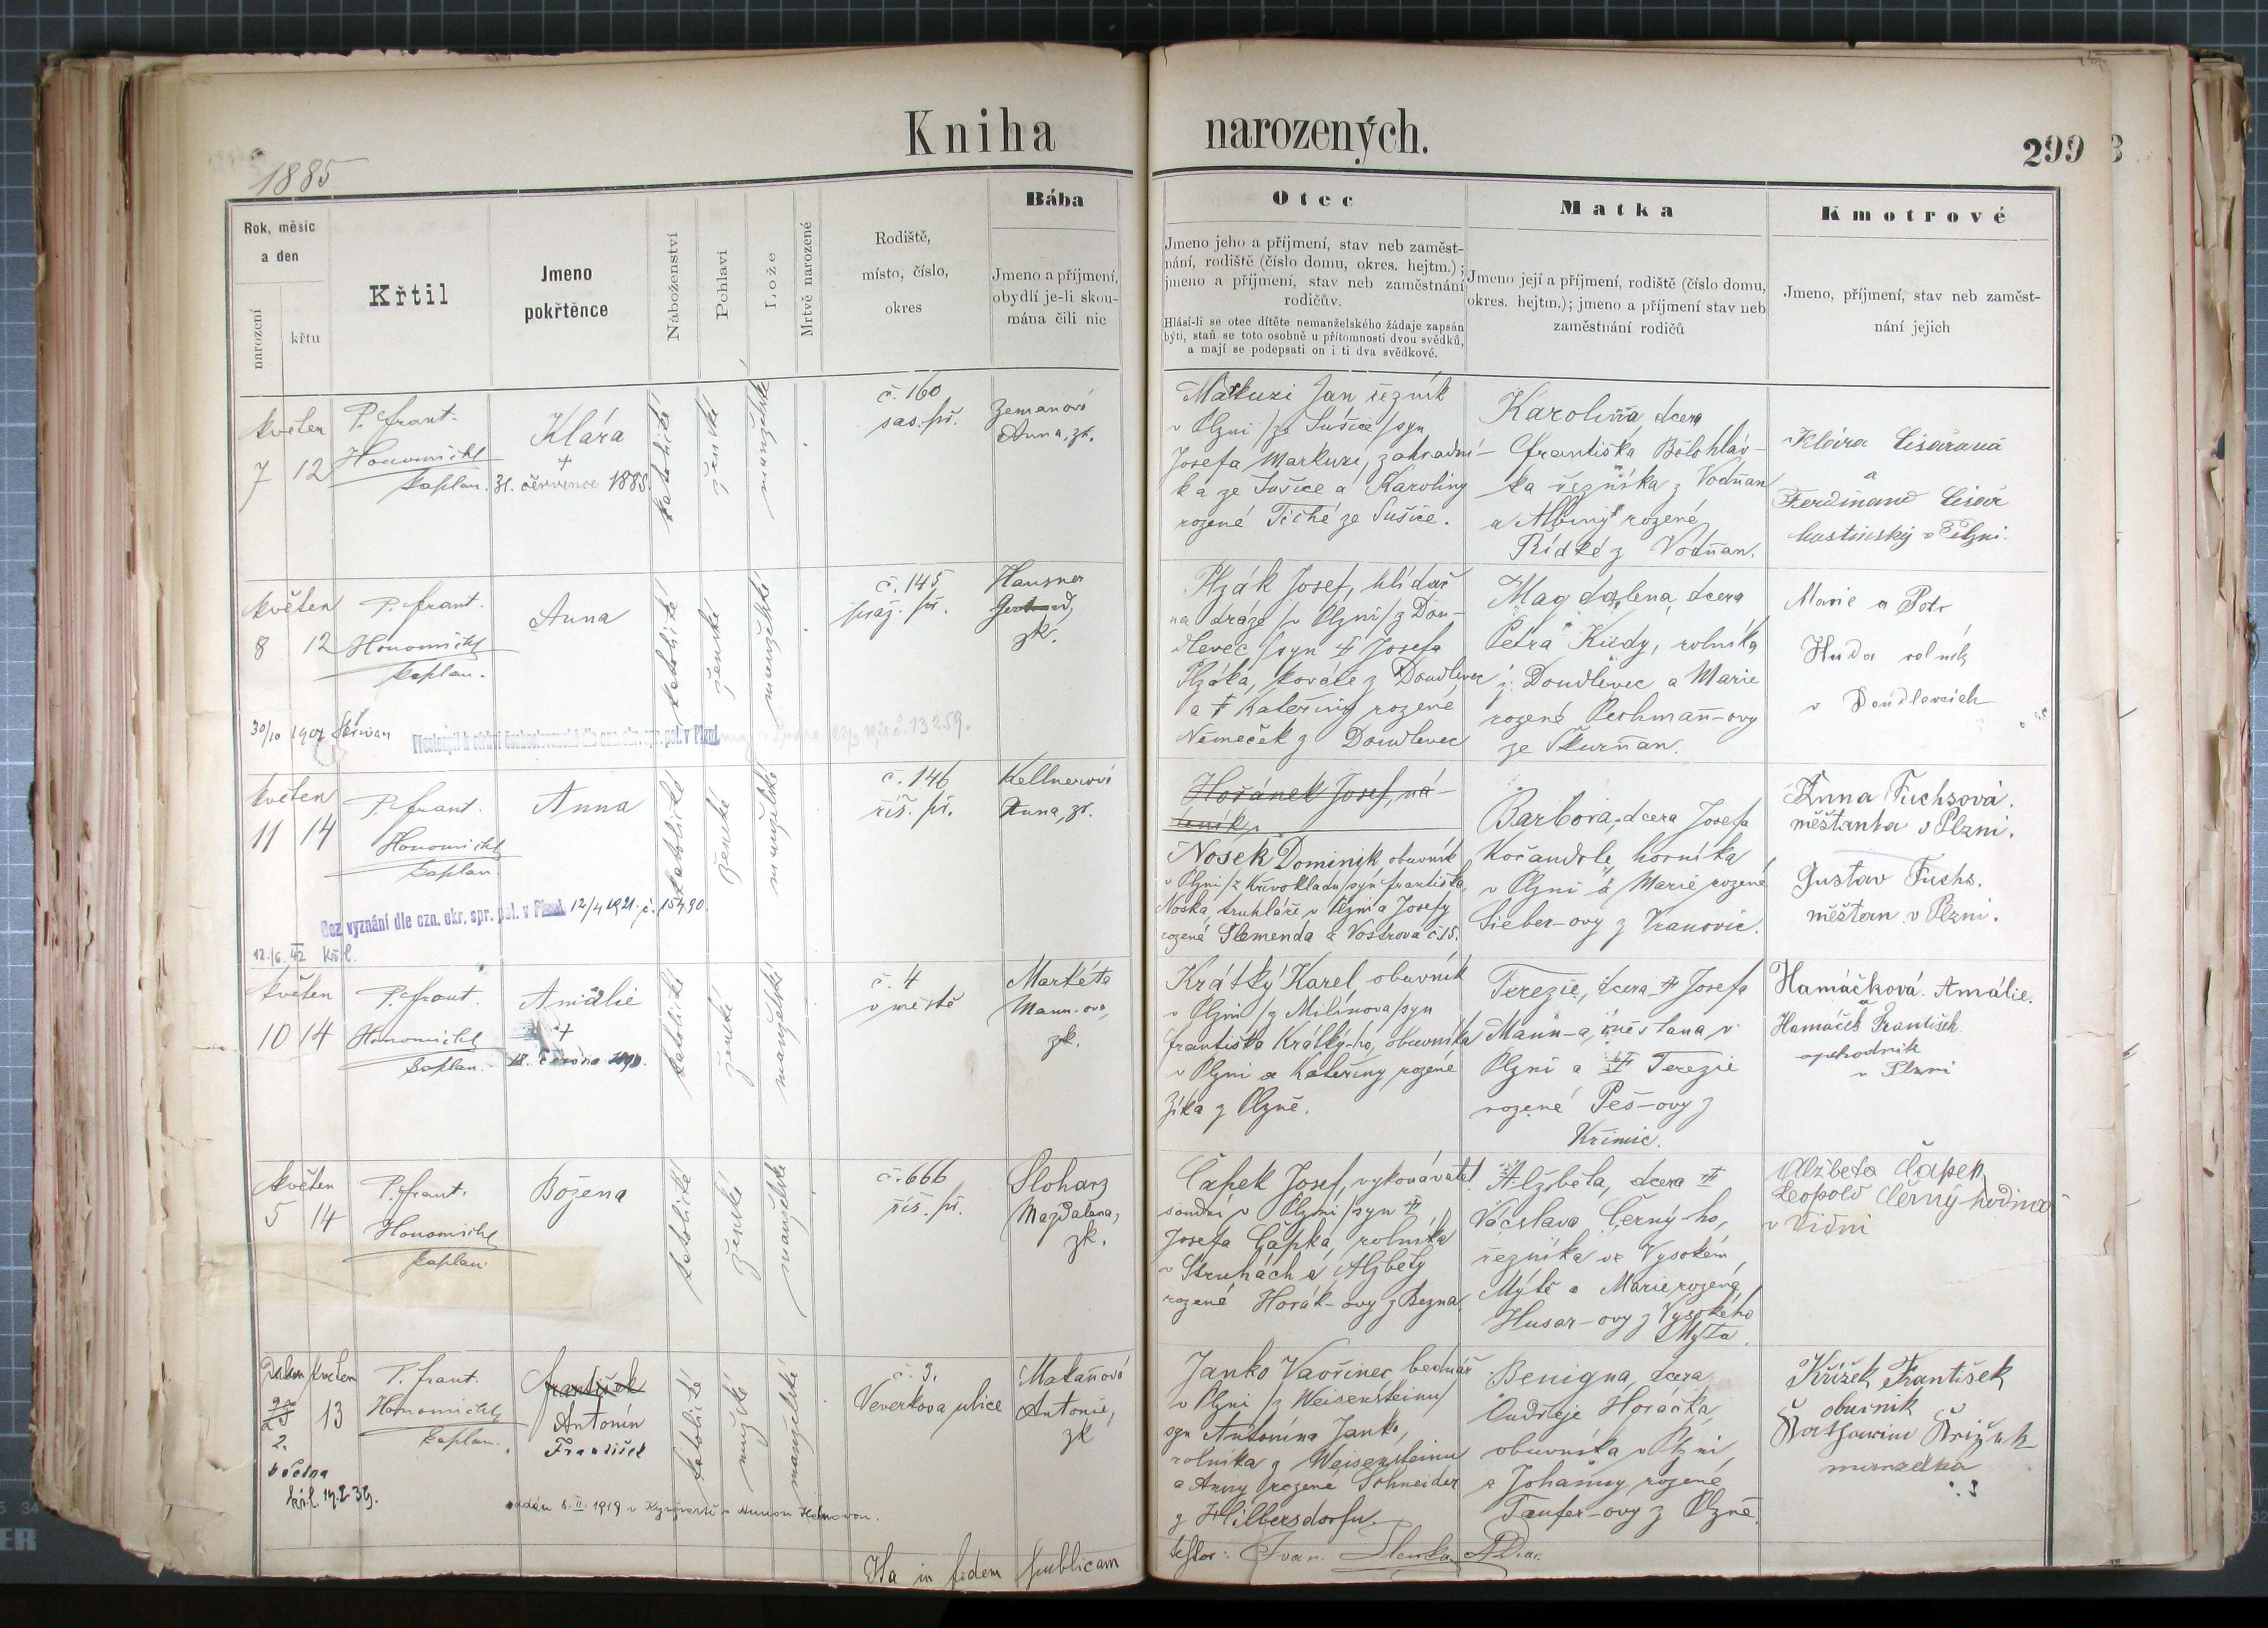 Kniha narozených.
299
1885
Rok, měsíc
a den
narození
křtu
Křtil
Jmeno
pokřtěnce
Náboženství
Pohlaví
Lože
Mrtvě narozené
Rodiště,
místo, číslo,
okres
Bába
Jmeno a příjmení,
obydlí je-li skou-
mána čili nic
Otec
Jmeno jeho a příjmení, stav neb zaměst-
nání, rodiště (číslo domu, okres. hejtm.);
jmeno a příjmení, stav neb zaměstnání
rodičův.
Hlásí-li se otec dítěte nemanželského žádaje zapsán
býti, staň se toto osobně u přítomnosti dvou svědků,
a mají se podepsati on i ti dva svědkové.
Matka
Jmeno její a příjmení, rodiště (číslo domu,
okres. hejtm.); jmeno a příjmení stav neb
zaměstnání rodičů
Kmotrové
Jmeno, příjmení, stav neb zaměst-
nání jejich
květen
7 12
P. Frant.
Honomichl
kaplan.
Klára
+
31. července 1885.
katolické
ženské
manželské
č. 160
sas. př.
Zemanová
Anna, zk.
Markuzi Jan řezník
v Plzni /ze Sušice/ syn
Josefa Markuzi, zahradní-
ka ze Sušice a Karoliny
rozené Tiché ze Sušice.
Karolina, dcera
Františka Bělohláv-
ka řezníka z Vodňan
a Albiny rozené
Řídké z Vodňan.
Klára Císařová
a
Ferdinand Císař
hostinský v Plzni.
květen
8 12
P. Frant.
Honomichl
kaplan.
Anna
katolické
ženské
manželské
č. 145
praž. př.
Hausner
zk.
Plzák Josef, hlídač
na dráze /v Plzni/ z Dou-
dlevec /syn † Josefa
Plzáka, kováře z Doudlevec
a † Kateřiny rozené
Němeček z Doudlevec
Magdalena, dcera
Petra Hudy, rolníka
z Doudlevec a Marie
rozené Pechmann-ovy
ze Škurňan.
Marie a Petr
Huda rolník
v Doudlevcích
30/10 1907
Přestoupil k církvi československé dle ozn. okr. spr. pol. v Plzni
květen
11 14
P. Frant.
Honomichl
kaplan
Anna
katolické
ženské
manželské
č. 146
říš. př.
Kellnerová
Anna, zk.
Hořánek Josef, ná-
Nosek Dominik obuvník
v Plzni /z Křivokladu/ syn Františka
Noska, truhláře v Plzni a Josefy
rozené Slemenda z Vostrova č. 15.
Barbora, dcera Josefa
Kořandrle, horníka
v Plzni a Marie rozené
Sieber-ovy z Vranovic.
Anna Fuchsová.
měšťanka v Plzni.
Gustav Fuchs.
měšťan v Plzni.
Bez vyznání dle ozn. okr. spr. pol. v Plzni. 12/4 1921. č. 15490.
12./6. 42 kř. l.
květen
10 14
P. Frant.
Honomichl
kaplan.
Amálie
+
katolické
ženské
manželské
č. 4
v městě
Markéta
Mann-ová,
zk.
Krátký Karel, obuvník
v Plzni /z Milínova/ syn
Františka Krátký-ho, obuvníka
v Plzni a Kateřiny rozené
Zíka z Plzně.
Terezie, dcera † Josefa
Mann-a, měšťana v
Plzni a † Terezie
rozené Peš-ovy z
Křimic.
Hamáčková Amálie.
a
Hamáček František
obchodník
v Plzni
květen
5 14
P. Frant.
Honomichl
kaplan
Božena
katolické
ženské
manželské
č. 666
říš. př.
Magdalena,
zk.
Čapek Josef, vykonávatel
soudní v Plzni /syn †
Josefa Čapka, rolníka
v Struhách a Alžběty
rozené Horák-ovy z Bezna
Alžběta, dcera †
Václava Černý-ho,
řezníka ve Vysokém
Mýtě a Marie rozené
Husar-ovy z Vysokého
Mýta
Alžběta Čapek
Leopold Černý hodinář
v Vídni
Duben květen
13
P. Frant.
Honomichl
kaplan.
František
Antonín
František
katolické
mužské
manželské
č. 3.
Veverkova ulice
Makaňová
Antonie,
zk
Janko Vavřinec bednář
v Plzni /z Weisensteinu/
syn Antonína Janko,
rolníka z Weisensteinu
a Anny rozené Schneider
z Hilbersdorfu.
Benigna, dcera
Ondřeje Horáčka,
obuvníka v Plzni,
a Johanny rozené
Taufer-ovy z Plzně.
Křížek František
obuvník
manželka
oddán 8. II. 1919 v Kynžvartě s
Ita in fidem publicam
testor: